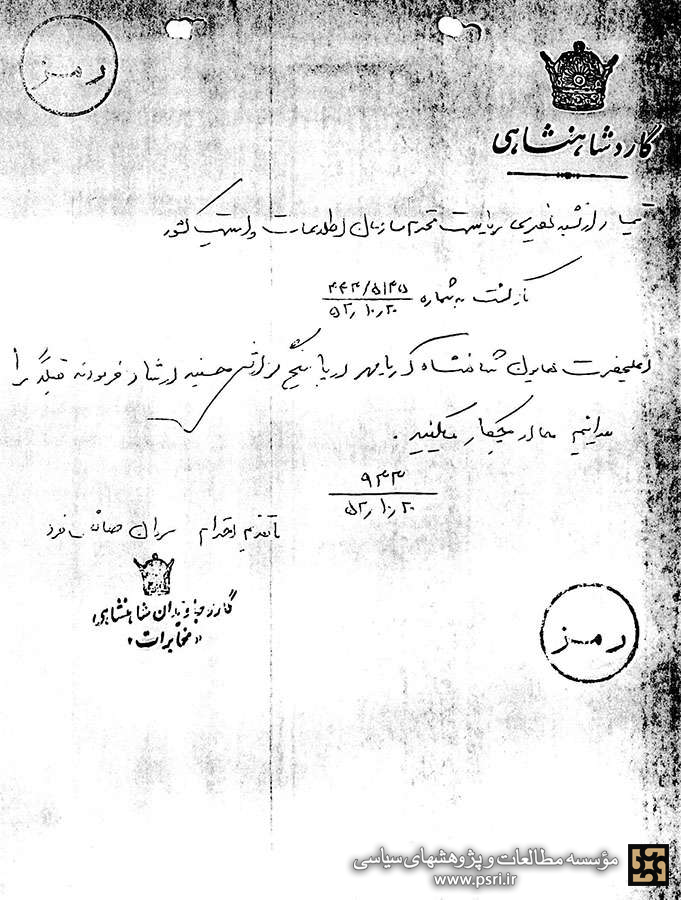 رمز
گارد شاهنشاهی
تیمسار ارتشبد نصیری ریاست محترم سازمان اطلاعات و امنیت کشور
بازگشت به شماره ۴۴۳/۵۱۴۵
۵۲٫۱۰٫۲۰
اعلیحضرت همایون شاهنشاه آریامهر در پاسخ گزارش چنین ارشاد فرمودند
میدانیم چکار میکنید .
۹۴۳
۵۲٫۱۰٫۲۰
با تقدیم احترام
گارد جاویدان شاهنشاهی
«مخابرات»
رمز
مؤسسه مطالعات و پژوهشهای سیاسی
www.psri.ir